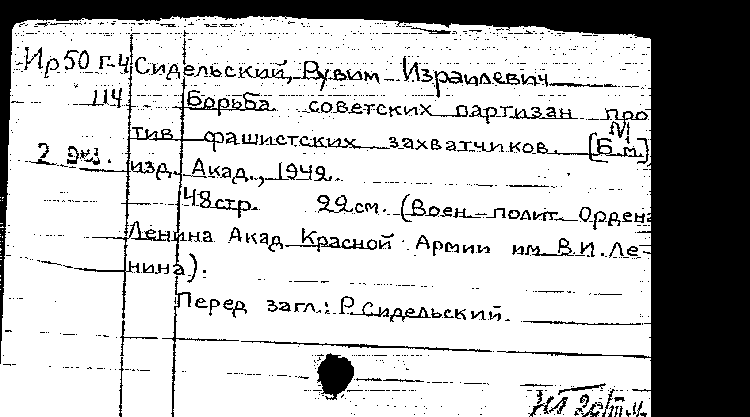 Ир50 г-4 Сидельский, Рувим Израилевич
114 Борьба советских партизан про
тив фашистских захватчиков. [Б.м.]
М
2 экз.
изд. Акад., 1942.
48стр. 22см. (Воен-полит. Ордена
Ленина Акад Красной Армии им. В.И. Ле-
нина).
Перед загл.: Р. Сидельский.